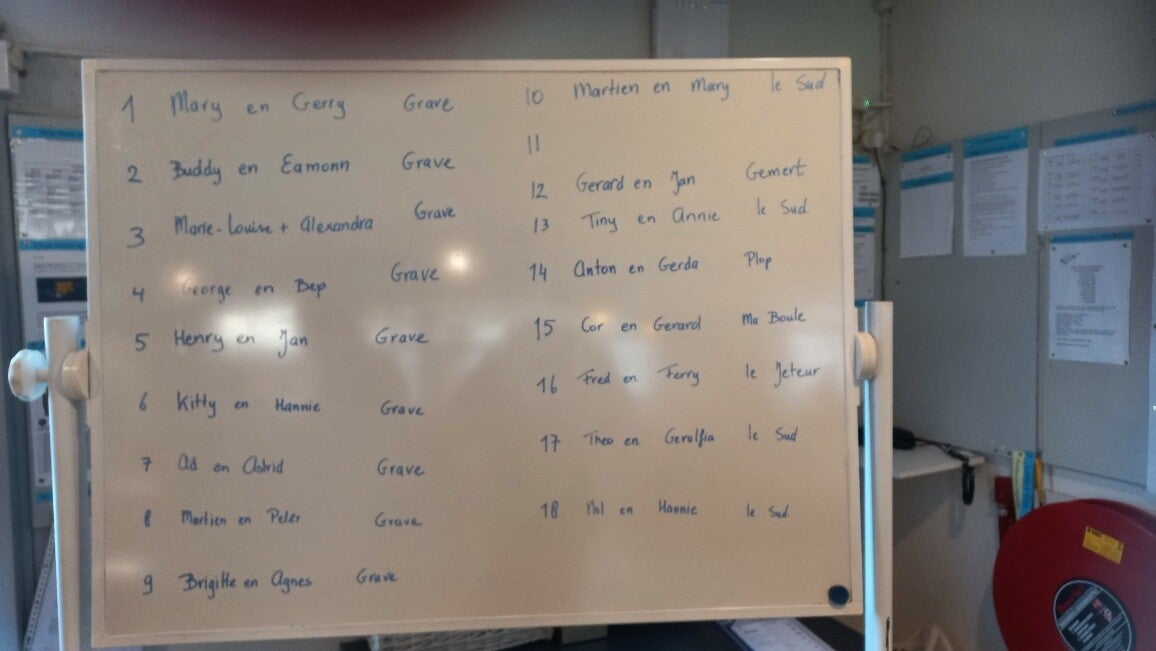 1 Mary en Gerry Grave
2 Buddy en Eamonn Grave
3 Marie-Louise + Alexandra Grave
4 George en Bep Grave
5 Henry en Jan Grave
6 Kitty en Hannie Grave
7 Ad en Astrid Grave
8 Martien en Peter Grave
9 Brigitte en Agnes Grave
10 Martien en Mary le Sud
11
12 Gerard en Jan Gemert
13 Tiny en Annie le Sud.
14 Anton en Gerda Plop
15 Cor en Gerard Ma Boule
16 Fred en Ferry le Jeteur
17 Theo en le Sud
18 en Hannie le Sud.